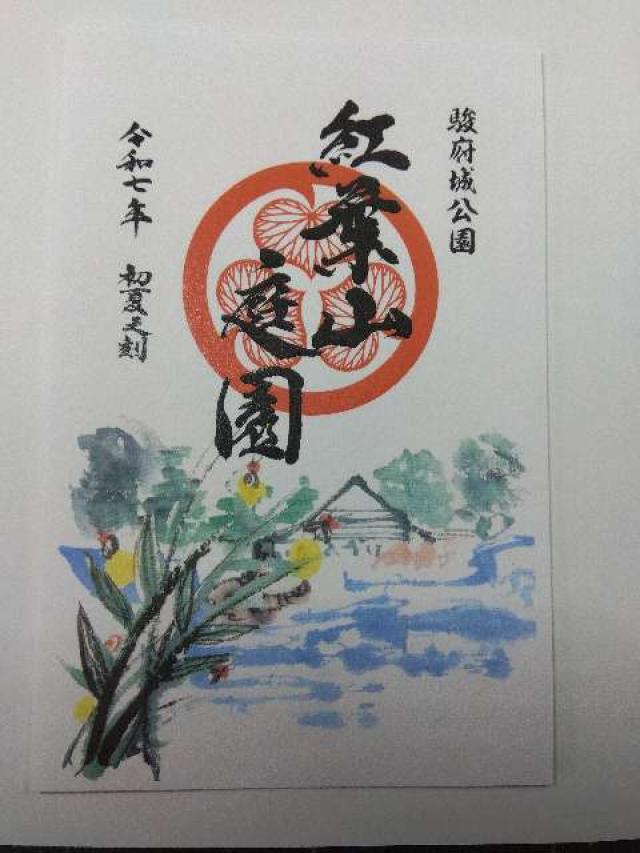 駿府城公園
紅葉山
庭園
令和七年 初夏之刻